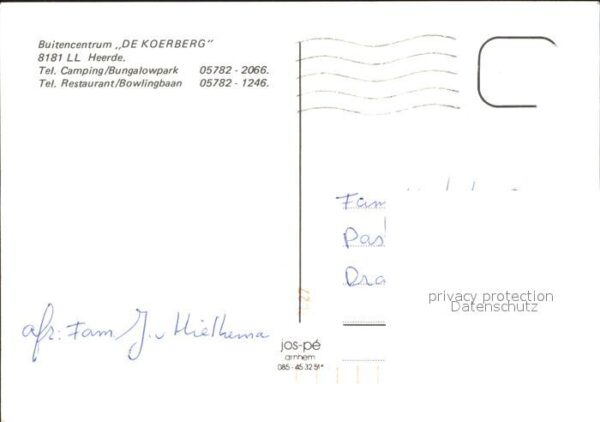 Buitencentrum „DE KOERBERG"
8181 LL Heerde.
Tel. Camping/Bungalowpark 05782 - 2066.
Tel. Restaurant/Bowlingbaan 05782 - 1246.
Fam
Pas
Dra
privacy protection
Datenschutz
afz: Fam J. v Hielkema
jos-pé
arnhem
085 - 45 32 51*